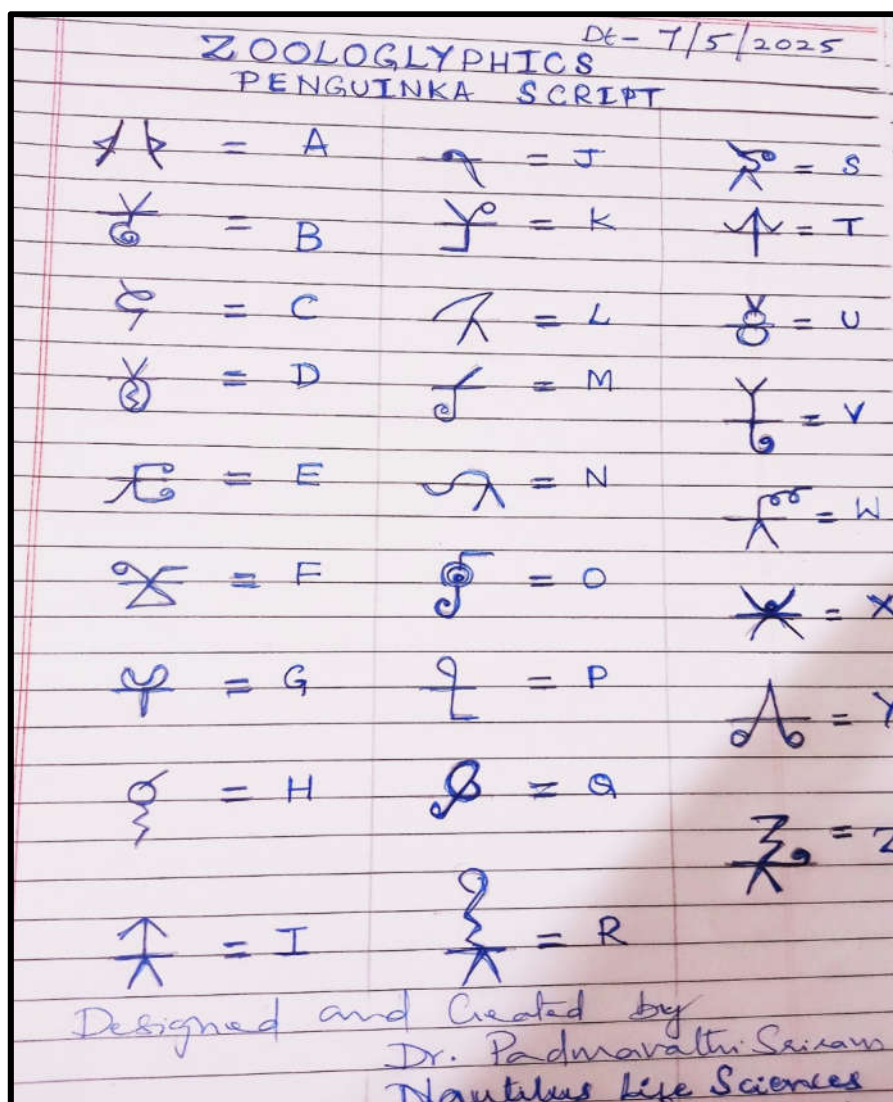 Dt- 7/5/2025
ZOOLOGLYPHICS
PENGUINKA SCRIPT
= A
= B
= C
= D
= E
= F
= G
= H
= I
= J
= K
= L
= M
= N
= O
= P
= Q
= R
= S
= T
= U
= V
= W
= X
= Y
= Z
Designed and Created by
Dr. Padmavathi Sriram
Nautilus Life Sciences